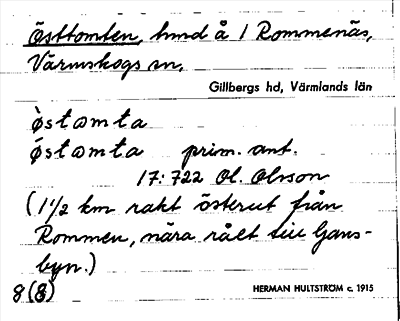 Östtomten, hmd å 1 Rommenäs,
Värmskogs sn,
Gillbergs hd, Värmlands län
östomta
östomta prim. ant.
17:722 Ol. Olsson
(1 1/2 km rakt österut från
Rommen, nära rået till Gans-
byn.)
8(8) HERMAN HULTSTRÖM c. 1915